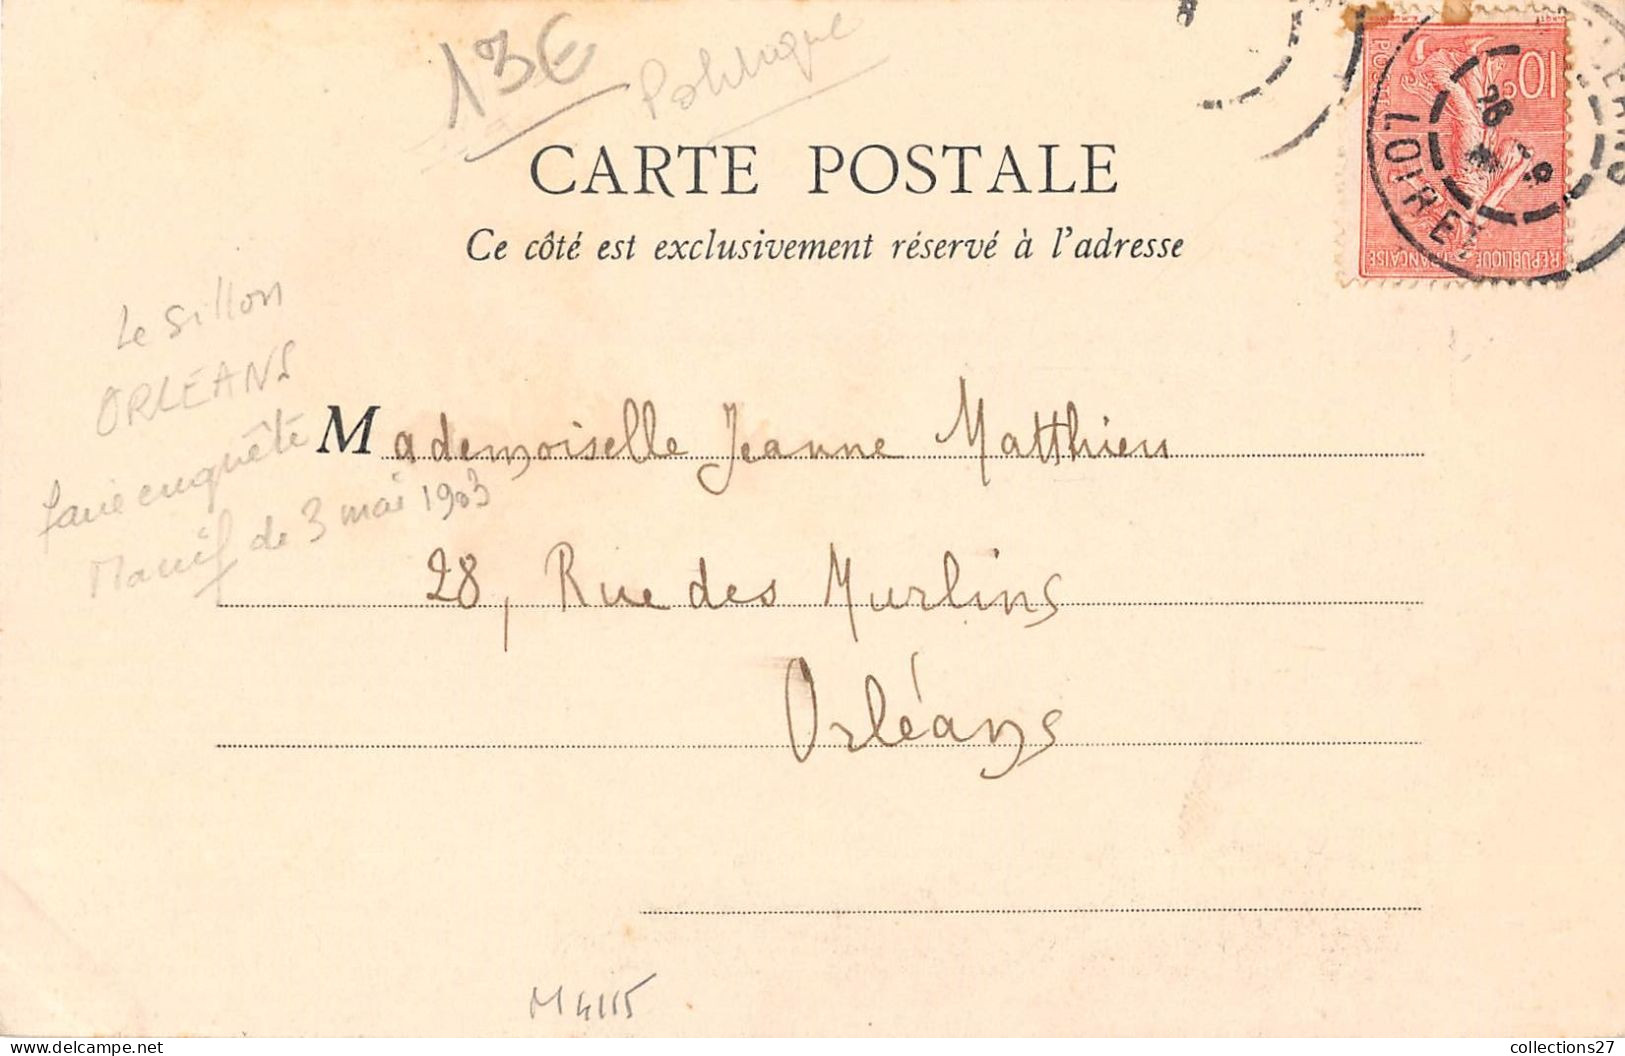 13€
Politique
CARTE POSTALE
Ce côté est exclusivement réservé à l'adresse
10c
POSTES
REPUBLIQUE FRANÇAISE
LOIRET
Le Sillon
ORLÉANS
faire enquête
Manif de 3 mai 1903
Mademoiselle Jeanne Matthieu
28, Rue des Murlins
Orléans
M4115
collections27